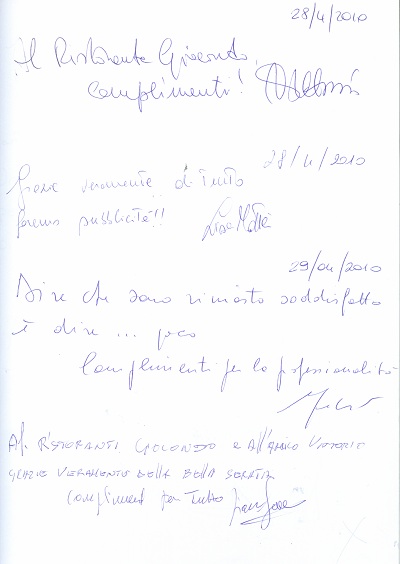 28/4/2010
Il Ristorante Giocondo,
complimenti!
28/4/2010
Grazie veramente di tutto
faremo pubblicità!!
29/04/2010
Dire che sono rimasto soddisfatto
è dire ... poco
Complimenti per la professionalità
Al RISTORANTE GIOCONDO e All'Amico Vittorio
GRAZIE VERAMENTE DELLA BELLA SERATA
Complimenti per Tutto